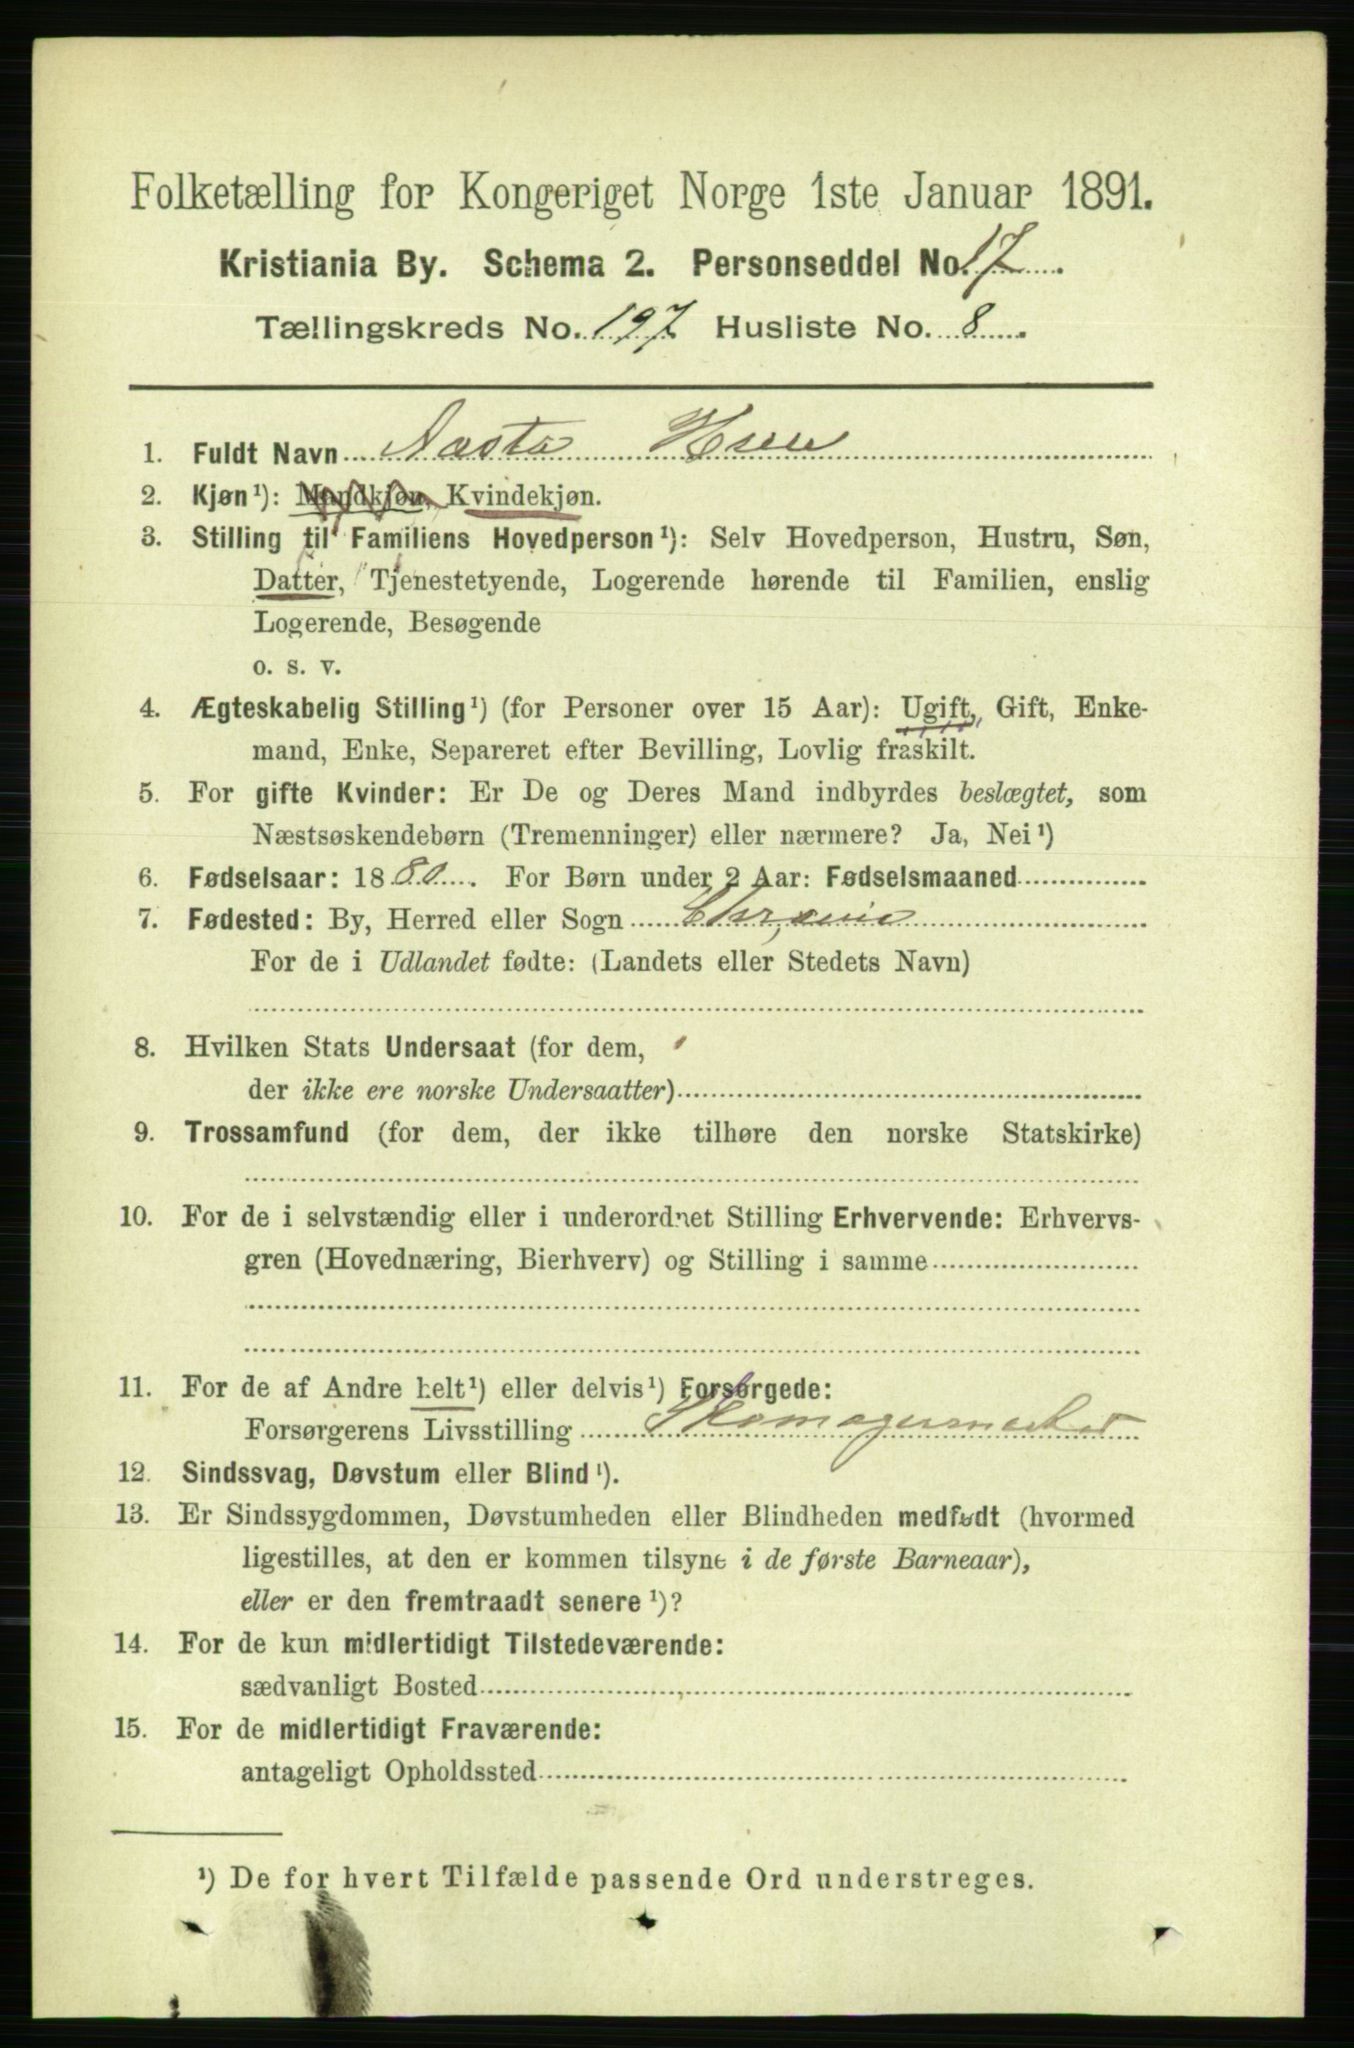 Folketælling for Kongeriget Norge 1ste Januar 1891.
Kristiania By. Schema 2. Personseddel No. 17
Tællingskreds No. 197 Husliste No. 8
1. Fuldt Navn Aasta
2. Kjøn¹): Mandkjøn, Kvindekjøn.
3. Stilling til Familiens Hovedperson¹): Selv Hovedperson, Hustru, Søn,
Datter, Tjenestetyende, Logerende hørende til Familien, enslig
Logerende, Besøgende
o. s. v.
4. Ægteskabelig Stilling¹) (for Personer over 15 Aar): Ugift, Gift, Enke-
mand, Enke, Separeret efter Bevilling, Lovlig fraskilt.
5. For gifte Kvinder: Er De og Deres Mand indbyrdes beslægtet, som
Næstsøskendebørn (Tremenninger) eller nærmere? Ja, Nei¹)
6. Fødselsaar: 1880. For Børn under 2 Aar: Fødselsmaaned
7. Fødested: By, Herred eller Sogn Chrania
For de i Udlandet fødte: (Landets eller Stedets Navn)
8. Hvilken Stats Undersaat (for dem,
der ikke ere norske Undersaatter)
9. Trossamfund (for dem, der ikke tilhøre den norske Statskirke)
10. For de i selvstændig eller i underordnet Stilling Erhvervende: Erhvervs-
gren (Hovednæring, Bierhverv) og Stilling i samme
11. For de af Andre helt¹) eller delvis¹) Forsørgede:
Forsørgerens Livsstilling Skomagermester
12. Sindssvag, Døvstum eller Blind¹).
13. Er Sindssygdommen, Døvstumheden eller Blindheden medfødt (hvormed
ligestilles, at den er kommen tilsyne i de første Barneaar),
eller er den fremtraadt senere¹)?
14. For de kun midlertidigt Tilstedeværende:
sædvanligt Bosted
15. For de midlertidigt Fraværende:
antageligt Opholdssted
¹) De for hvert Tilfælde passende Ord understreges.